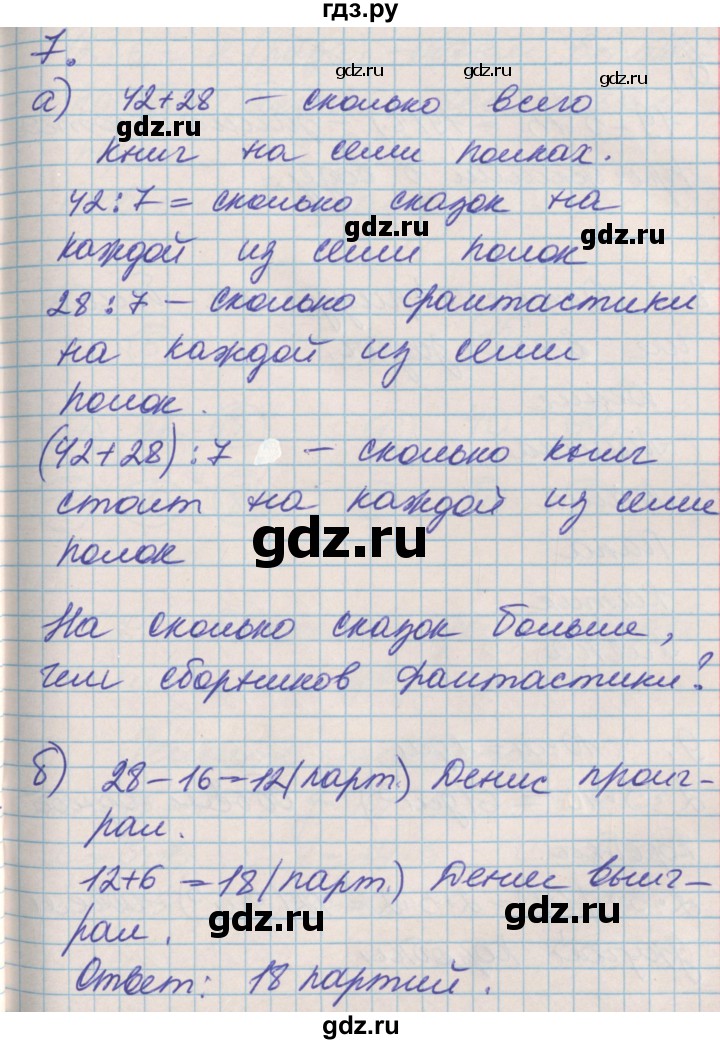 гдз.ру
7.
gdz.ru gdz.ru gdz.ru
а) 42+28 – сколько всего
gdz.ru
книг на семи полках.
42:7 = сколько сказок на
gdz.ru gdz.ru
каждой из семи полок
28:7 – сколько фантастики
на каждой из семи
полок.
(42+28):7 – сколько книг
стоит на каждой из семи
gdz.ru
полок
На сколько сказок больше,
чем сборников фантастики?
б) 28-16=12(парт.) Денис проиг-
рал.
12+6=18(парт.) Денис выиг-
gdz.ru gdz.ru
рал.
Ответ: 18 партий.
gdz.ru